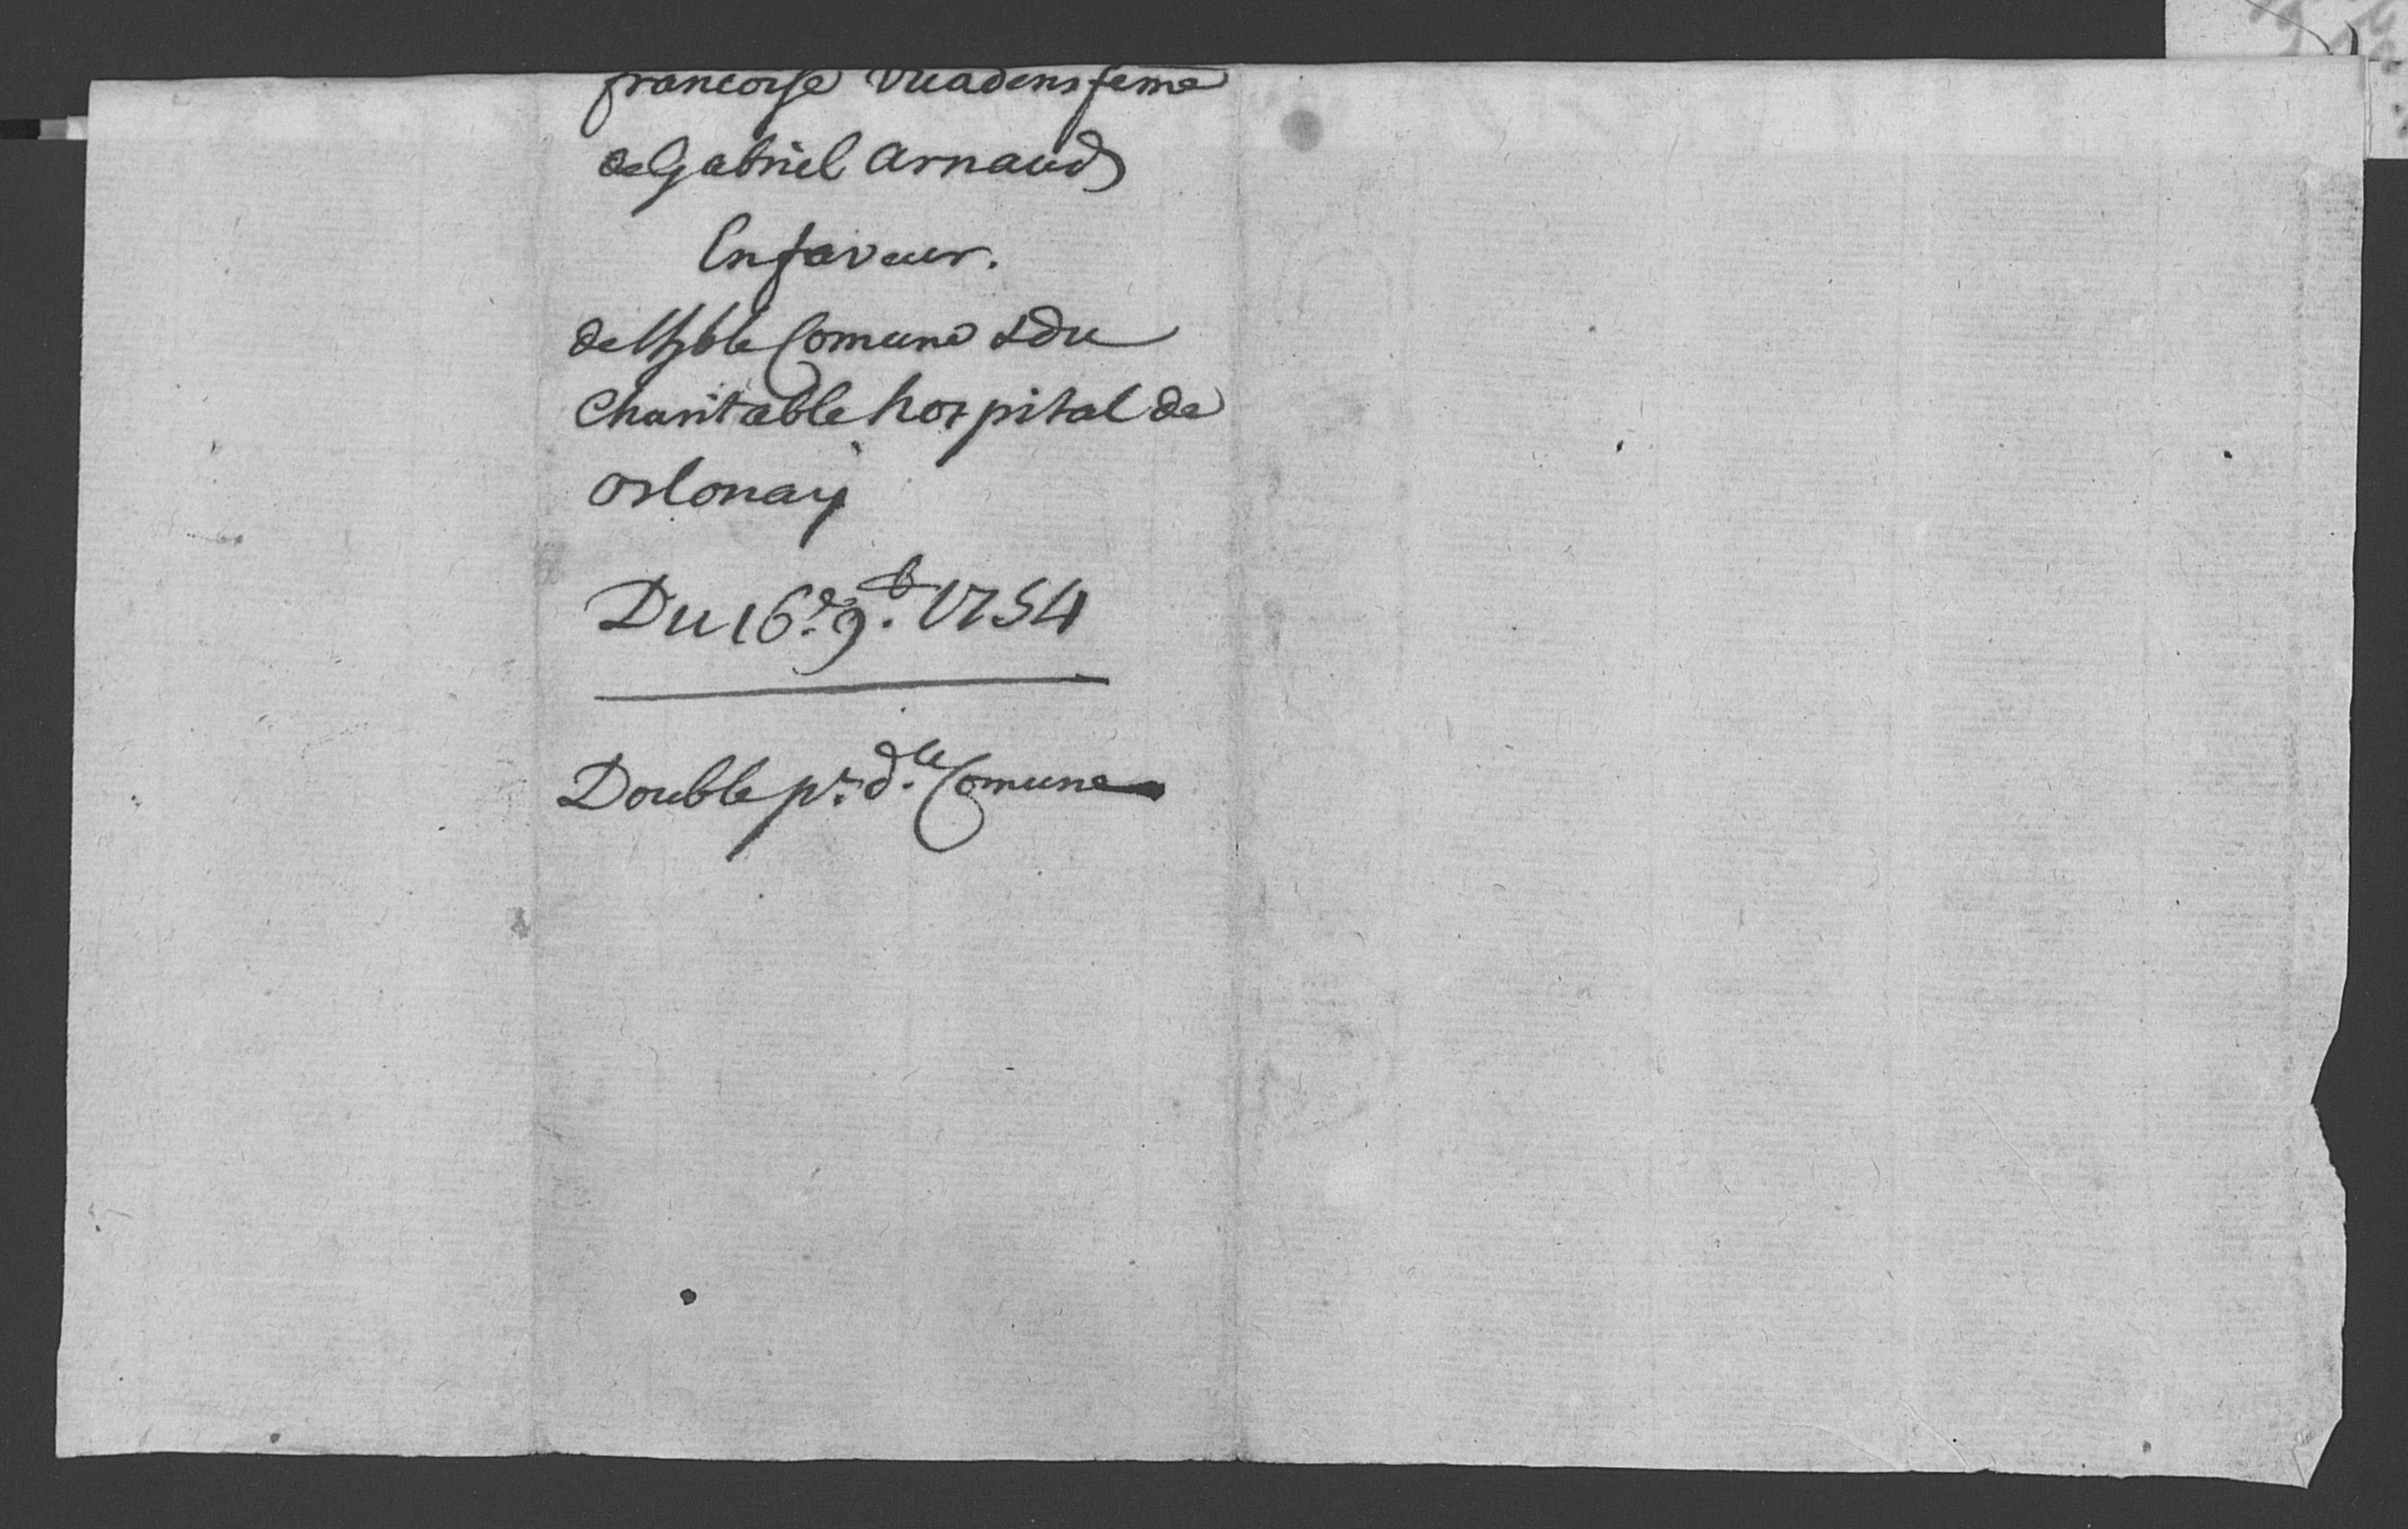 francoise Vuadens feme
de Gabriel Arnaud
En faveur.
de l'h̃ble Comune & du
Charitable hospital de
Orlonay
Du 16.e 9.b 1754
Double pr. d.te Comune